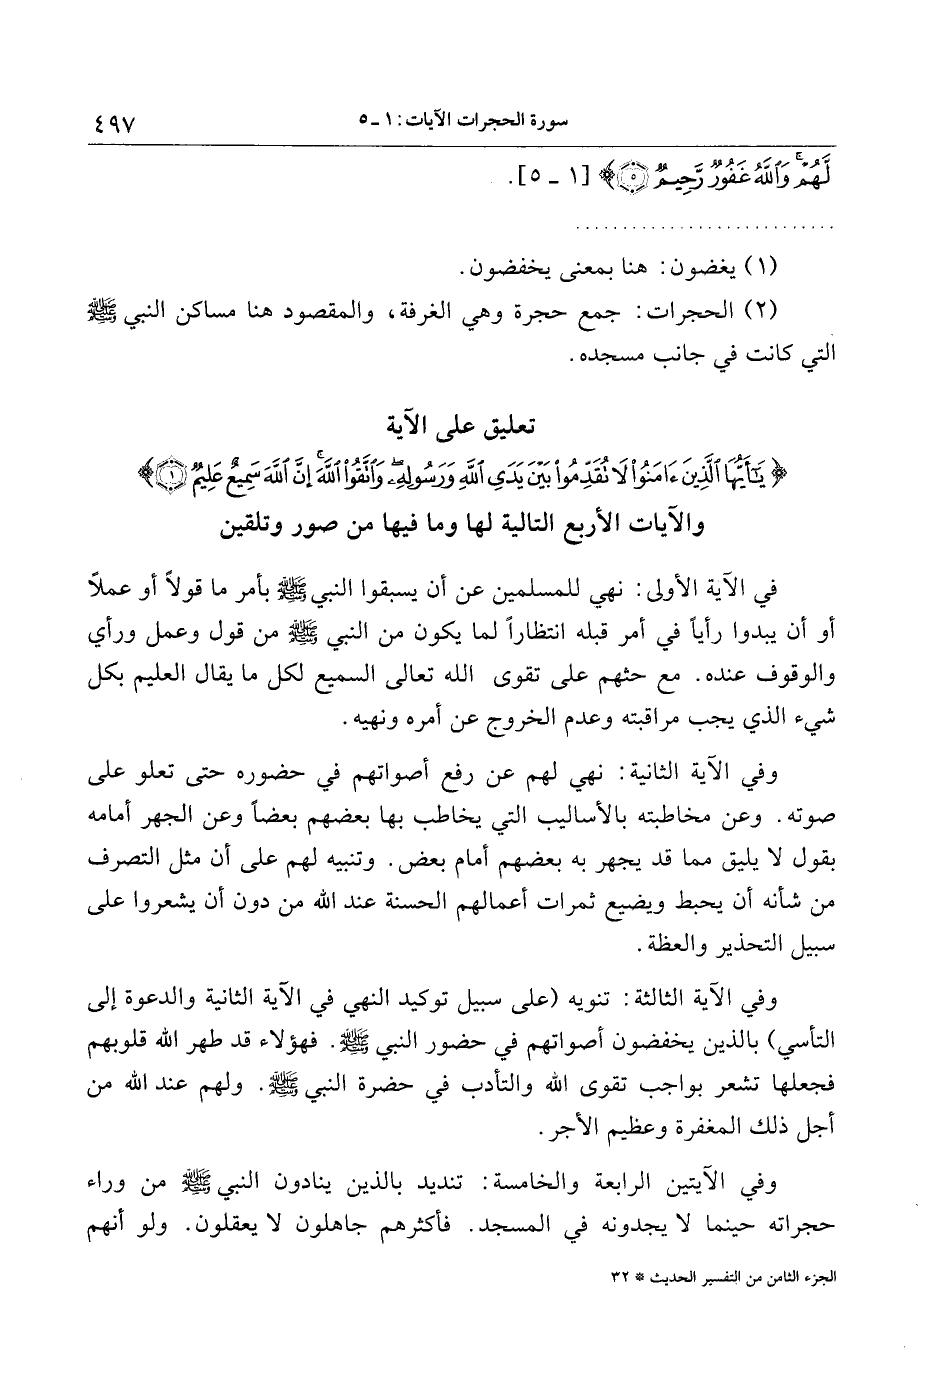 سورة الحجرات الآيات: ١ ـ ٥ ٤٩٧
لَهُمْ ۚ وَٱللَّهُ غَفُورٌ رَّحِيمٌ ۝٥﴾ [١ ـ ٥].
...........................
(١) يغضون: هنا بمعنى يخفضون.
(٢) الحجرات: جمع حجرة وهي الغرفة، والمقصود هنا مساكن النبي ﷺ
التي كانت في جانب مسجده.
تعليق على الآية
﴿يَٰٓأَيُّهَا ٱلَّذِينَ ءَامَنُوا۟ لَا تُقَدِّمُوا۟ بَيْنَ يَدَىِ ٱللَّهِ وَرَسُولِهِۦ ۖ وَٱتَّقُوا۟ ٱللَّهَ ۚ إِنَّ ٱللَّهَ سَمِيعٌ عَلِيمٌ ۝١﴾
والآيات الأربع التالية لها وما فيها من صور وتلقين
في الآية الأولى: نهي للمسلمين عن أن يسبقوا النبي ﷺ بأمر ما قولاً أو عملاً
أو أن يبدوا رأياً في أمر قبله انتظاراً لما يكون من النبي ﷺ من قول وعمل ورأي
والوقوف عنده. مع حثهم على تقوى الله تعالى السميع لكل ما يقال العليم بكل
شيء الذي يجب مراقبته وعدم الخروج عن أمره ونهيه.
وفي الآية الثانية: نهي لهم عن رفع أصواتهم في حضوره حتى تعلو على
صوته. وعن مخاطبته بالأساليب التي يخاطب بها بعضهم بعضاً وعن الجهر أمامه
بقول لا يليق مما قد يجهر به بعضهم أمام بعض. وتنبيه لهم على أن مثل التصرف
من شأنه أن يحبط ويضيع ثمرات أعمالهم الحسنة عند الله من دون أن يشعروا على
سبيل التحذير والعظة.
وفي الآية الثالثة: تنويه (على سبيل توكيد النهي في الآية الثانية والدعوة إلى
التأسي) بالذين يخفضون أصواتهم في حضور النبي ﷺ. فهؤلاء قد طهر الله قلوبهم
فجعلها تشعر بواجب تقوى الله والتأدب في حضرة النبي ﷺ. ولهم عند الله من
أجل ذلك المغفرة وعظيم الأجر.
وفي الآيتين الرابعة والخامسة: تنديد بالذين ينادون النبي ﷺ من وراء
حجراته حينما لا يجدونه في المسجد. فأكثرهم جاهلون لا يعقلون. ولو أنهم
الجزء الثامن من التفسير الحديث * ٣٢